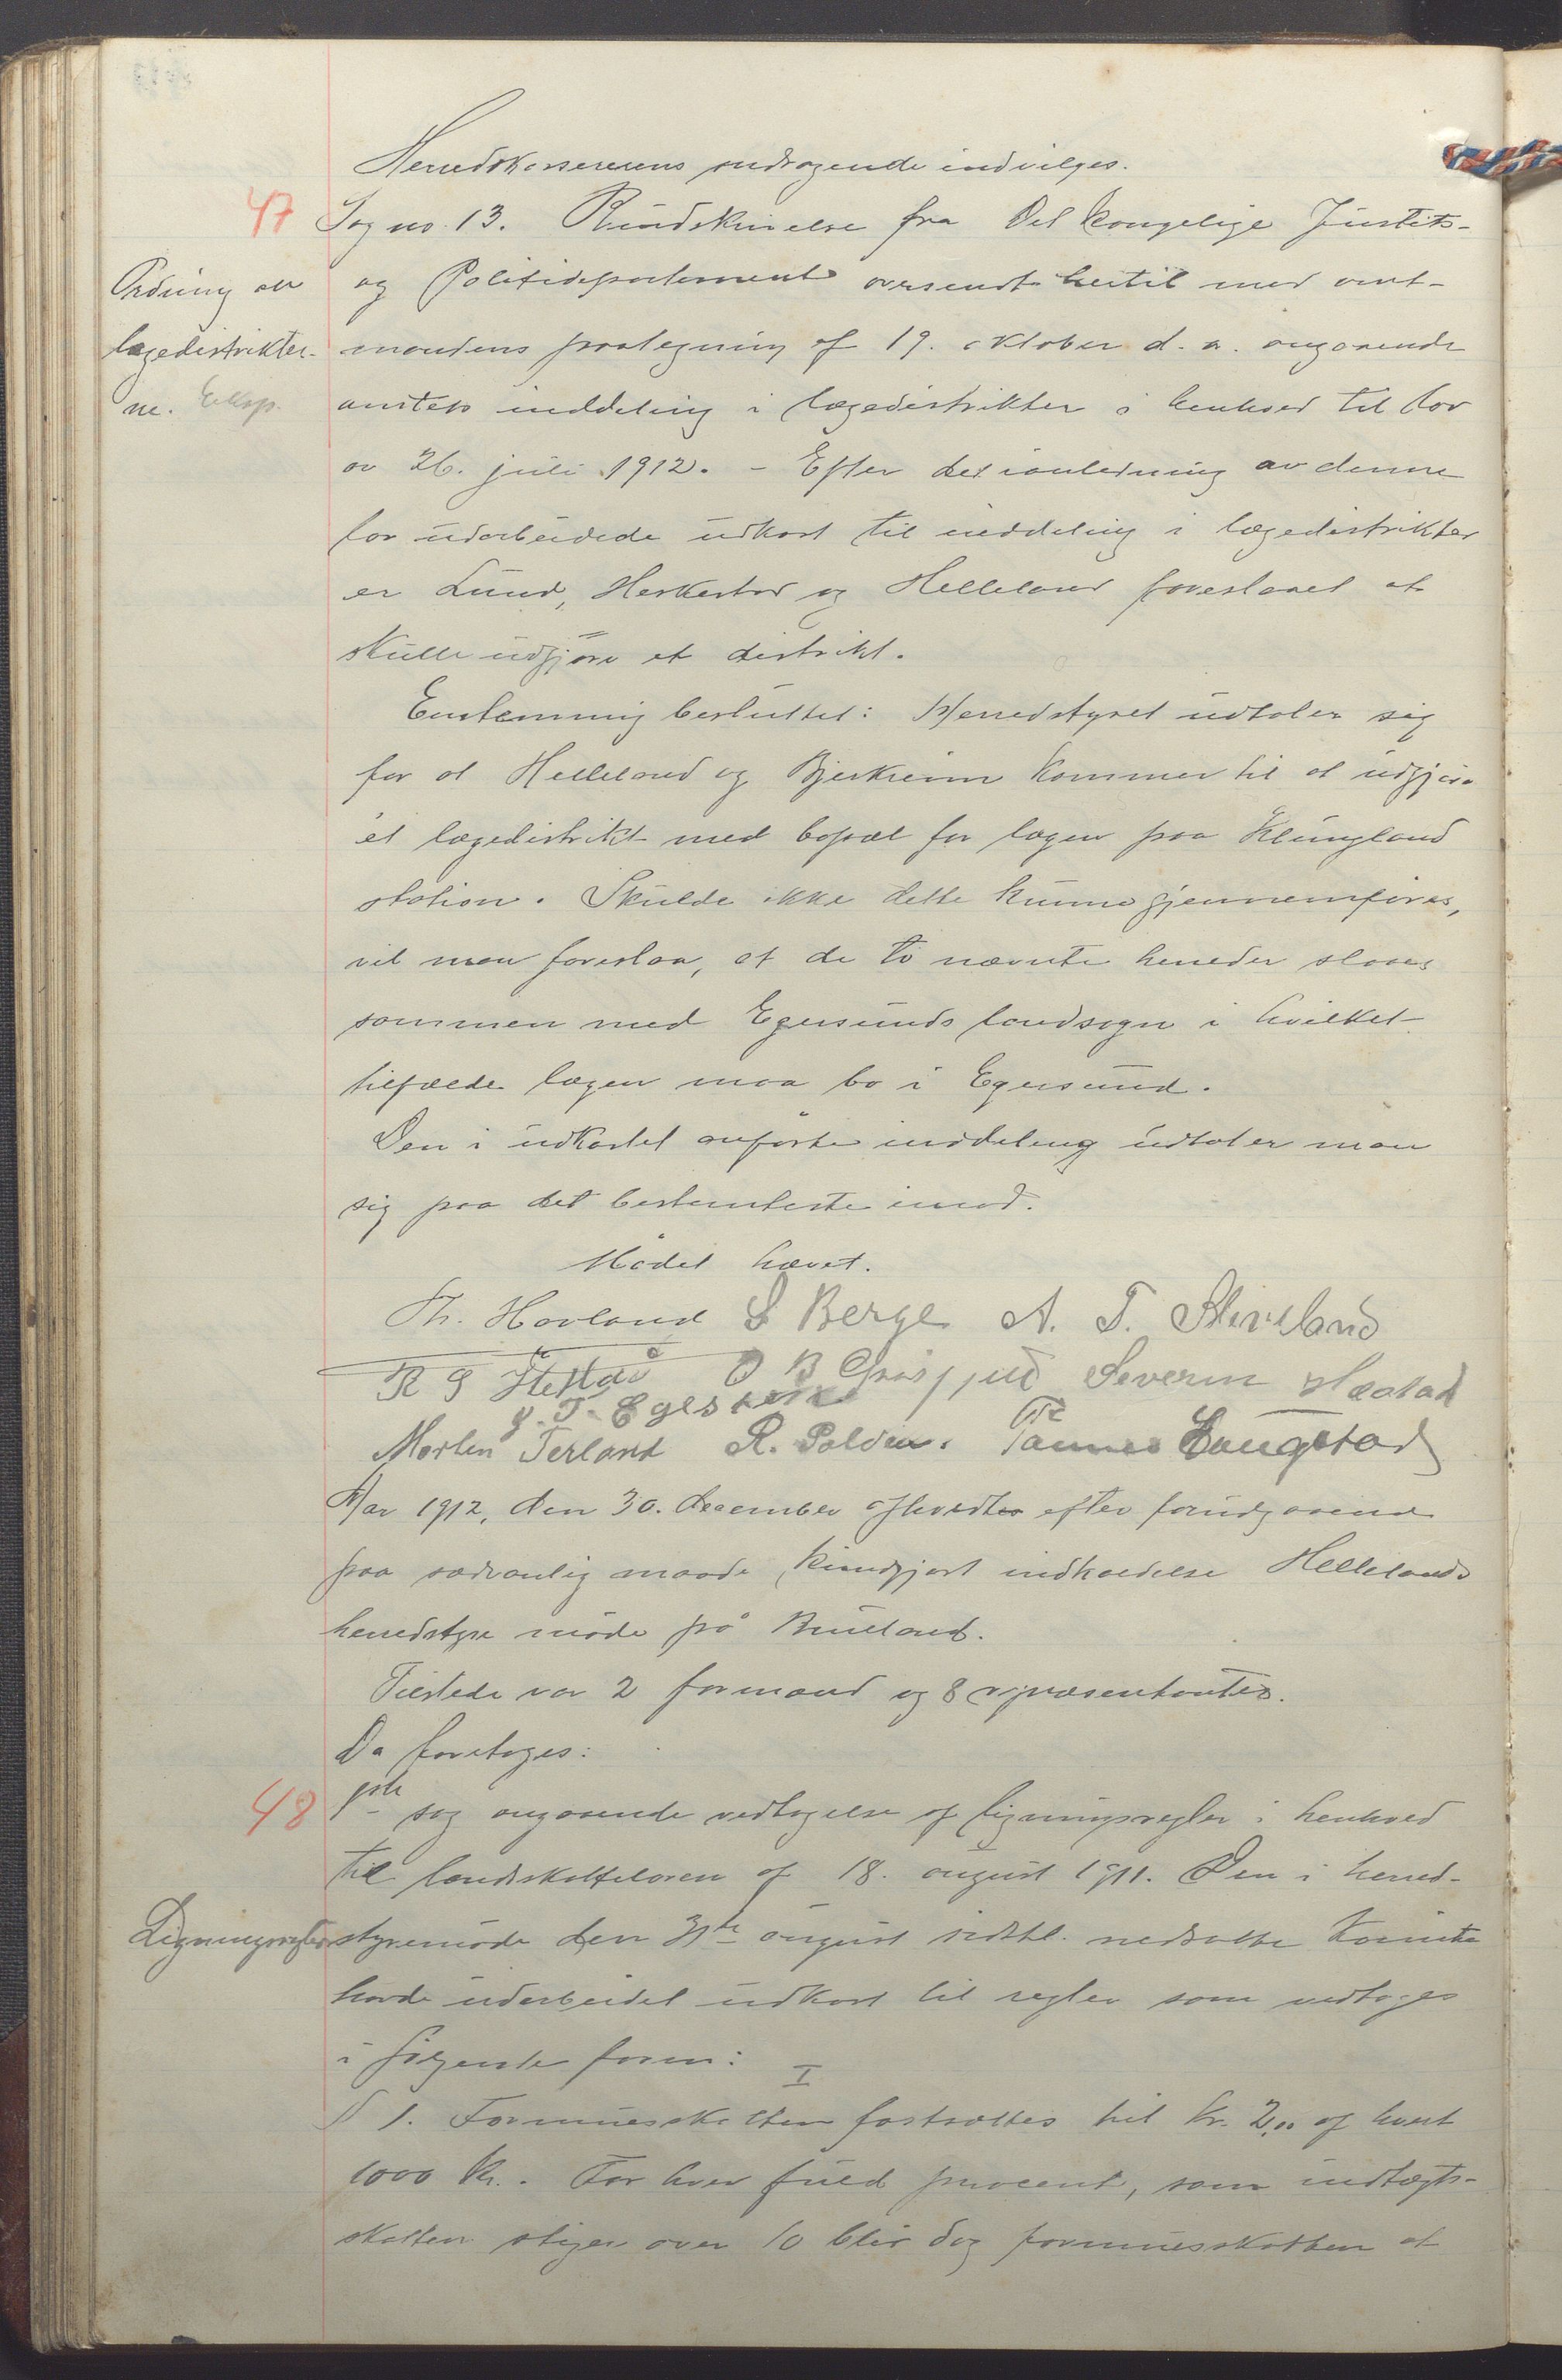 Herredskassererens andragende indvilges.
47
Sag no. 13. Rundskrivelse fra Det kongelige Justits-
Ordning av
lægedistrikter-
ne. Eksp.
og Politidepartement oversendt hertil med amt-
mandens paategning af 19. oktober d. a. angaaende
amtets inddeling i lægedistrikter i henhold til lov
av 26. juli 1912. - Efter det i anledning av denne
lov udarbeidede udkast til inddeling i lægedistrikter
er Lund, Heskestad og Helleland foreslaaet at
skulle udgjøre et distrikt.
Enstemmig besluttet: Herredstyret udtaler sig
for at Helleland og Bjerkreim kommer til at udgjøre
et lægedistrikt med bopæl for lægen paa Klungland
station. Skulde ikke dette kunne gjennemføres,
vil man foreslaa, at de to nævnte herreder slaaes
sammen med Egersunds landsogn i hvilket
tilfælde lægen maa bo i Egersund.
Den i udkastet anførte inddeling udtaler man
sig paa det bestemteste imod.
Mødet hævet.
Th. Hovland S Berge A. T. Skineland
R G O B Severin
Morten Terland R. Polden. Tønnes Laugstad
Aar 1912, den 30. december afholdtes efter forudgaaende
paa sædvanlig maade kundgjort indkaldelse Hellelands
herredstyre møde på Bruland.
Tilstede var 2 formænd og 8 repræsentanter.
Da foretoges:
48
1ste sag angaaende vedtagelse af ligningsregler i henhold
til landsskatteloven af 18. august 1911. Den i herred-
Ligningsregler
styremøde den 31te august sidstl. nedsatte komite
havde udarbeidet udkast til regler som vedtoges
i følgende form:
I
§ 1. Formuesskatten fastsættes til kr. 2,00 af hvert
1000 kr. For hver fuld procent, som indtægts-
skatten stiger over 10 blir dog formuesskatten at